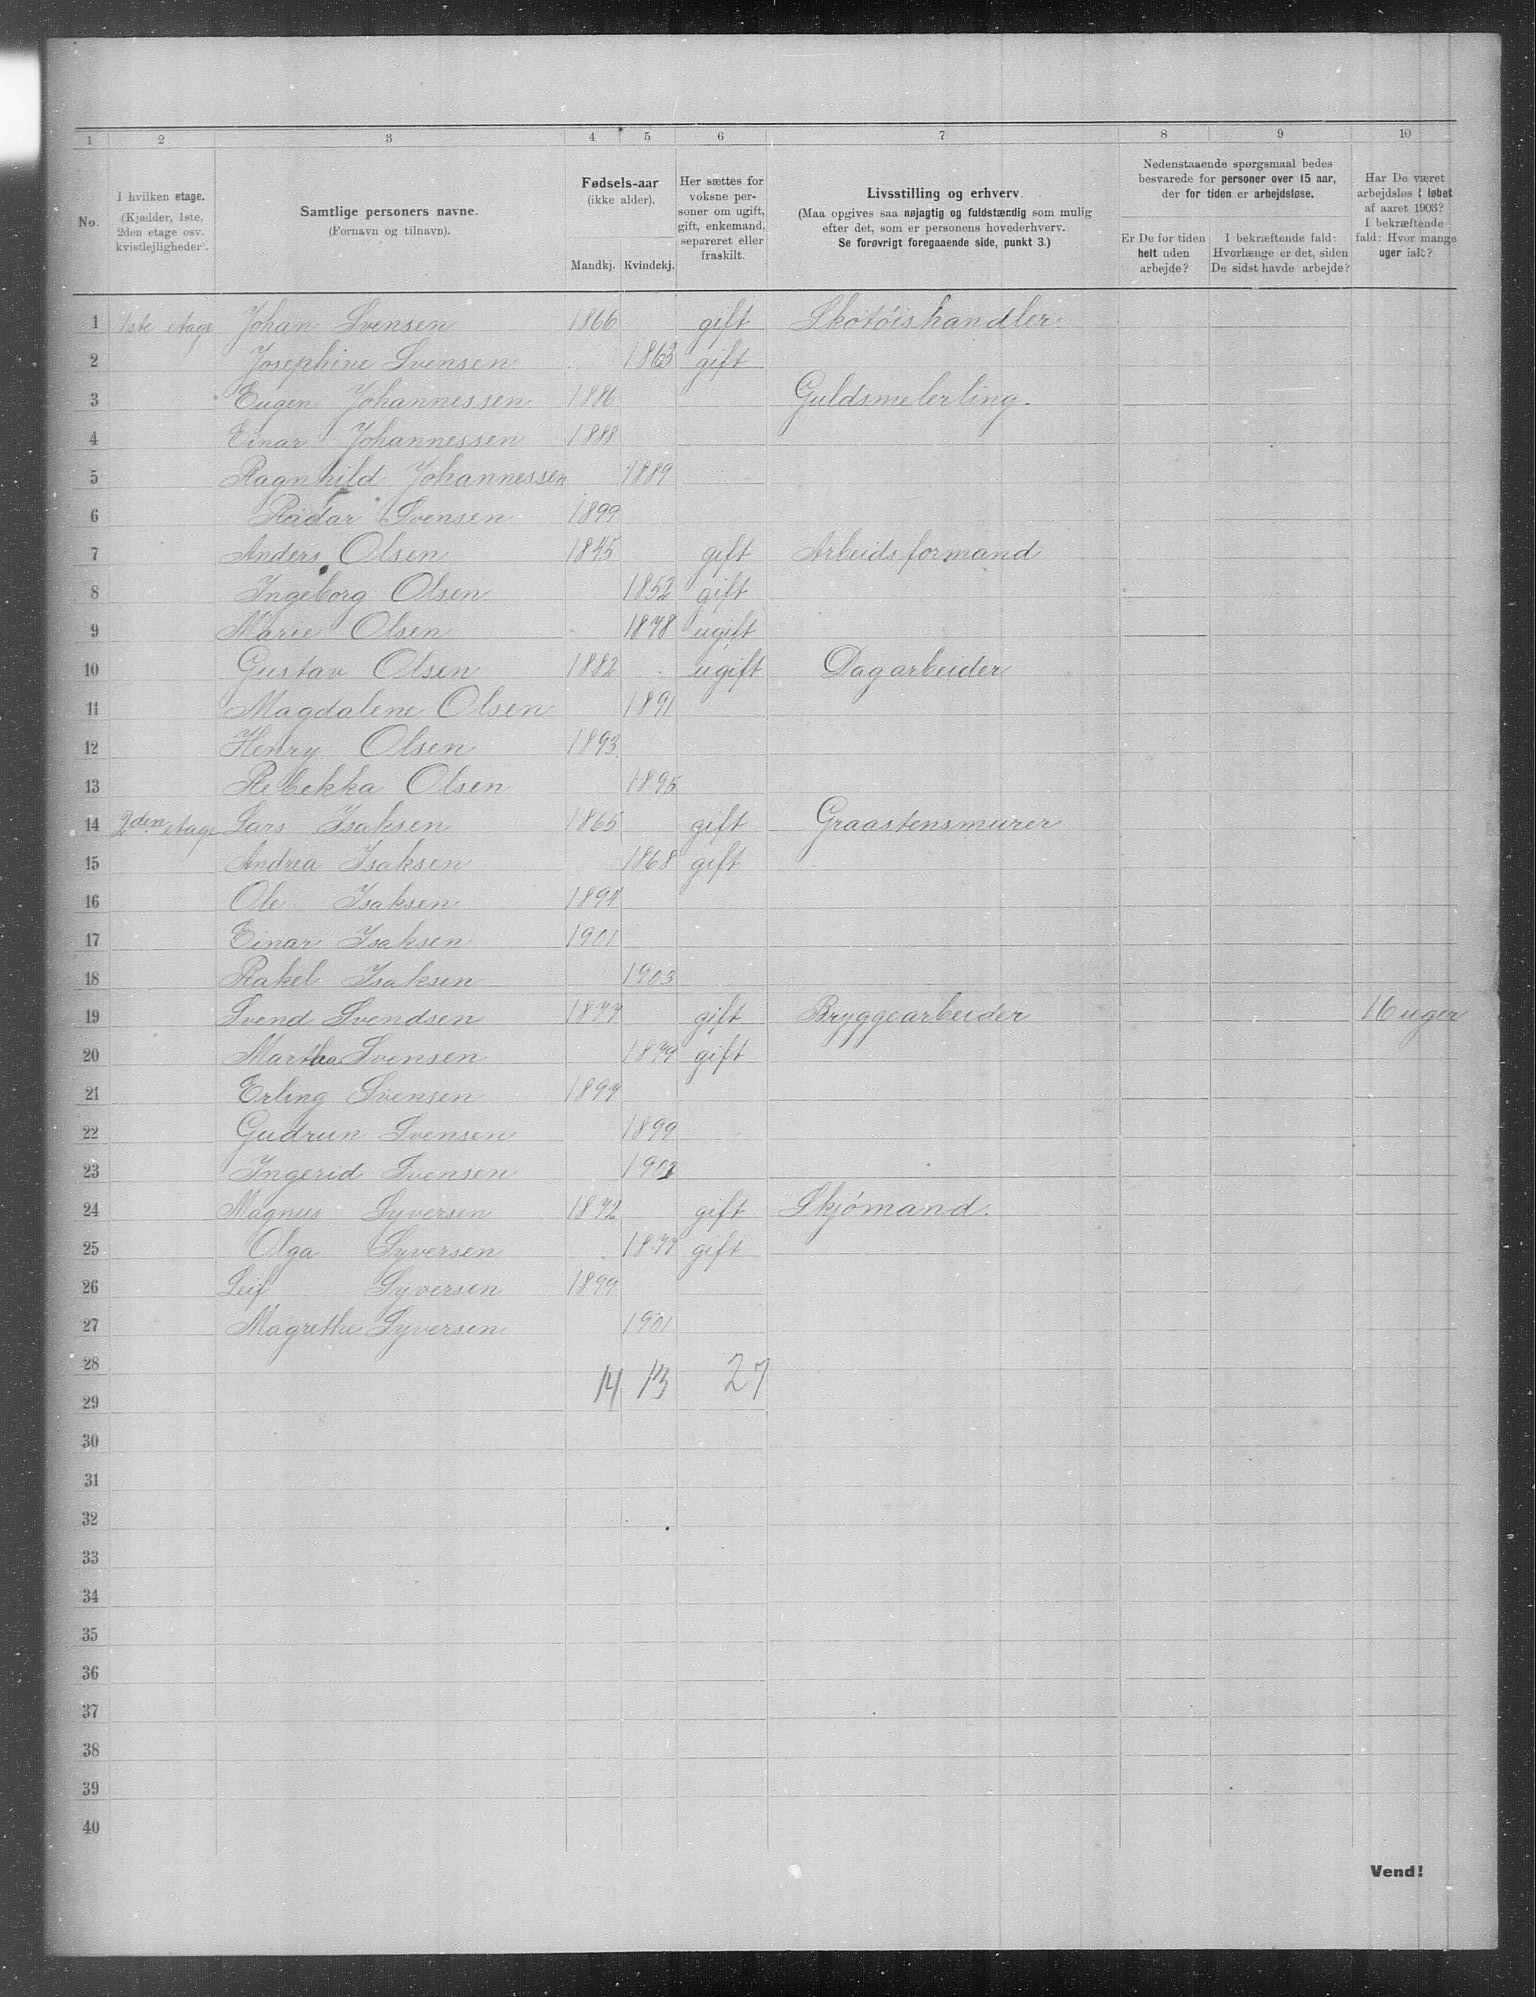 1 2 3 4 5 6 7 8 9 10
No.
I hvilken etage.
(Kjælder, 1ste,
2den etage osv.
kvistlejligheder).
Samtlige personers navne.
(Fornavn og tilnavn).
Fødsels-aar
(ikke alder).
Mandkj. Kvindekj.
Her sættes for
voksne per-
soner om ugift,
gift, enkemand,
separeret eller
fraskilt.
Livsstilling og erhverv.
(Maa opgives saa nøjagtig og fuldstændig som mulig
efter det, som er personens hovederhverv.
Se forøvrigt foregaaende side, punkt 3.)
Nedenstaaende spørgsmaal bedes
besvarede for personer over 15 aar,
der for tiden er arbejdsløse.
Er De for tiden
helt uden
arbejde?
I bekræftende fald:
Hvorlænge er det, siden
De sidst havde arbejde?
Har De været
arbejdsløs i løbet
af aaret 1903?
I bekræftende
fald: Hvor mange
uger ialt?
1 1ste etage Johan Svensen 1866 gift Skotöishandler.
2 Josephine Svensen 1863 gift
3 Eugen Johannessen 1886 Guldsmelerling.
4 Einar Johannessen 1888
5 Ragnhild Johannessen 1889
6 Reidar Svensen 1899
7 Anders Olsen 1845 gift Arbeidsformand
8 Ingeborg Olsen 1852 gift
9 Marie Olsen 1878 ugift
10 Gustav Olsen 1882 ugift Dagarbeider
11 Magdalene Olsen 1891
12 Henry Olsen 1893
13 Rebekka Olsen 1895
14 2den etage Lars Isaksen 1865 gift Graastensmurer
15 Andrea Isaksen 1868 gift
16 Ole Isaksen 1894
17 Einar Isaksen 1901
18 Rakel Isaksen 1903
19 Svend Svendsen 1877 gift Bryggearbeider 16 uger
20 Martha Svensen 1879 gift
21 Erling Svensen 1897
22 Gudrun Svensen 1899
23 Ingerid Svensen
24 Magnus Syversen 1872 gift Skjömand.
25 Olga Syversen 1877 gift
26 Leif Syversen 1899
27 Magrethe Syversen 1901
28 14 13 27
29
30
31
32
33
34
35
36
37
38
39
40
Vend!